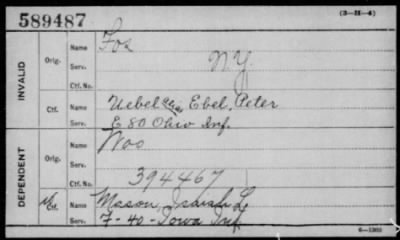 589487 (3—H—4)
INVALID
Orig. Name Fox
Serv. N.Y.
Ctf. No.
Ctf. Name Uebel alias Ebel, Peter
Serv. E 80 Ohio Inf.
DEPENDENT
Orig. Name Woo
Serv.
Ctf. No. 394467
Ctf. Name Mason, Isaiah L.
Serv. F-40-Iowa Inf.
6—1303